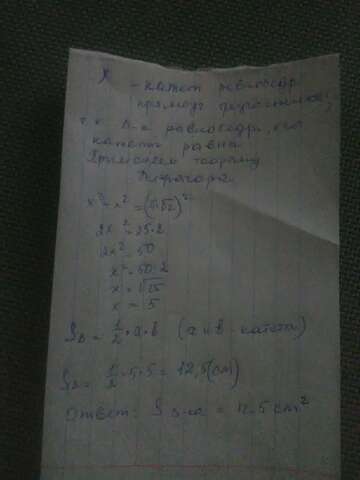 x
- катет равнобедр
прямоуг треугольника,
т.к. Δ-к равнобедр, его
катеты равны
Применяем теорему
Пифагора
x² + x² = (5√2)²
2x² = 25·2
2x² = 50
x² = 50:2
x = √25
x = 5
S Δ = 1/2 · a · b (a и b - катеты)
S Δ = 1/2 · 5 · 5 = 12,5 (cm)
Ответ: S Δ-ка = 12.5 cm²